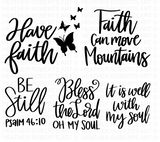 Have
faith
Faith
can move
Mountains
BE
Still
PSALM 46:10
Bless
the Lord
OH MY SOUL
it is well
with
my soul